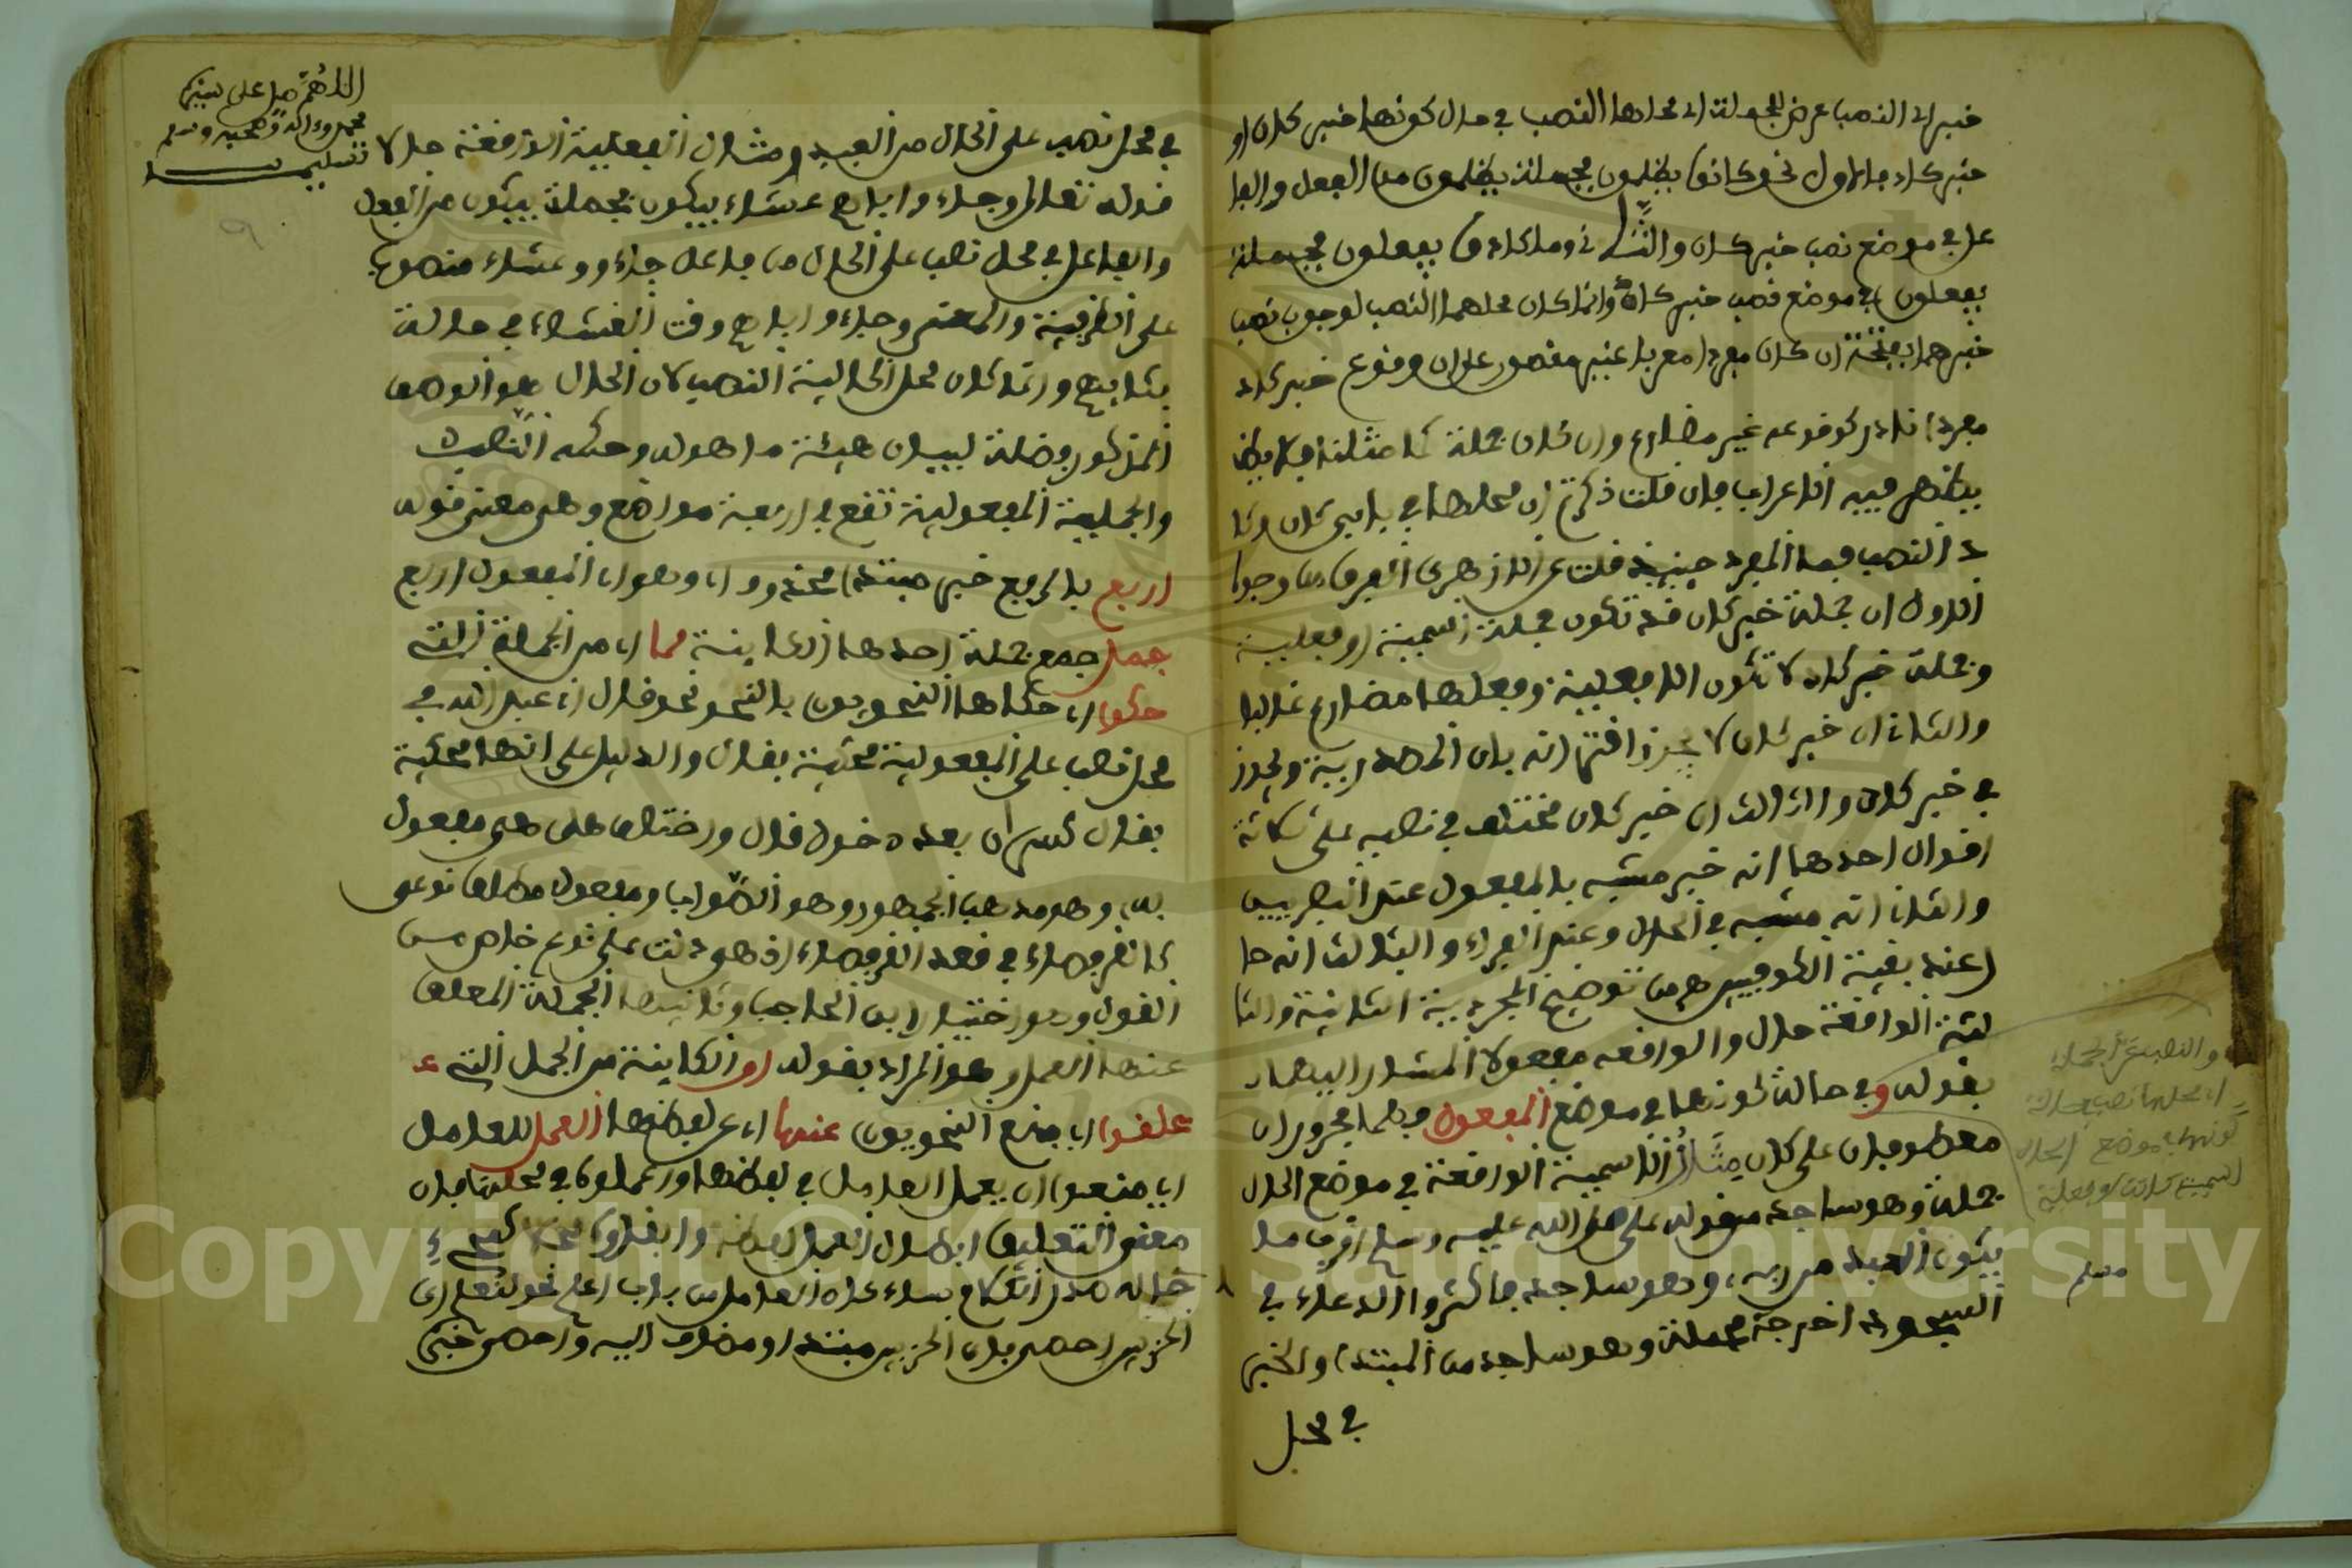 خبر اي النصب عرض للجملة اي محلها النصب في حال كونها خبر كان او
خبر كاد فالاول نحو كانوا يظلمون فجملة يظلمون من الفعل والفا
عل في موضع نصب خبر كان والثاني وما كادوا يفعلون فجملة
يفعلون في موضع نصب خبر كاد وانما كان محلهما النصب لوجوب نصب
خبرهما بفتحة ان كان مفردا معربا غير مقصور على ان وقوع خبر كاد
مفردا نادر كوقوعه غير مضارع وان كان جملة كما مثلنا فلا
يظهر فيه الاعراب فان قلت ذكرتم ان محلها في بابي كان وكا
د النصب فما المفرد حينئذ قلت عن الازهري الفرق من وجوه
الاول ان جملة خبر كان قد تكون جملة اسمية او فعلية
وجملة خبر كاد لا تكون الا فعلية وفعلها مضارع غالبا
والثاني ان خبر كان لا يجوز اقترانه بان المصدرية ويجوز
في خبر كاد والثالث ان خبر كان مختلف في نصبه على ثلاثة
اقوال احدها انه خبر مشبه بالمفعول عند البصريين
والثاني انه مشبه في الحال وعند الفراء والثالث انه حا
ل عند بقية الكوفيين من توضيح الجرومية الثانية والثا
لثة الواقعة حال والواقعة مفعولا المشار اليهما
بقوله وفي حالة كونها في موضع المفعول وهما مجروران
معطوفان على كان مثال الاسمية الواقعة في موضع الحال
جملة وهو ساجد من قوله صلى الله عليه وسلم اقرب ما
يكون العبد من ربه وهو ساجد فاكثروا الدعاء في
السجود اخرجه مسلم فجملة وهو ساجد من المبتدا والخبر
في محل
والنصب عن الجملة
اي محلها نصب حالة
كونها في موضع الحال
اسمية كانت او فعلية
مسلم
اللهم صل على نبينا
محمد واله وصحبه وسلم
تسليما
٩
في محل نصب على الحال من العبد ومثال الفعلية الواقعة حالا
قوله تعالى وجاءوا اباهم عشاء يبكون فجملة يبكون من الفعل
والفاعل في محل نصب على الحال من فاعل جاءوا وعشاء منصوب
على الظرفية والمعنى وجاءوا اباهم وقت العشاء في حالة
بكايهم وانما كان محل الحالية النصب لان الحال هو الوصف
المذكور فضلة لبيان هيئة ما هو له وحكمه النصب
والجملة المفعولية تقع في اربعة مواضع وهي معنى قوله
اربع بالرفع خبر مبتدا محذوف اي وهو اي المفعول اربع
جمل جمع جملة احدها الكاينة مما اي من الجملة التي
حكوا اي حكاها النحويون بالقول نحو قال اني عبد الله في
محل نصب على المفعولية محكية بقال والدليل على انها محكية
بقال كسر ان بعد دخول قال واختلف هل هي مفعول
به وهو مذهب الجمهور وهو الصواب او مفعول مطلق نوعي
كالقرفصاء في قعد القرفصاء اذ هو دالة على نوع خاص من
القول وهو اختيار ابن الحاجب وثانيها الجملة المعلق
عنها العمل وهو المراد بقوله او الكاينة من الجمل التي
علقوا اي منع النحويون عنها اي عن لفظها العمل للعامل
اي منعوا ان يعمل العامل في لفظها واعملوه في محلها فان
معنى التعليق ابطال العمل لفظا وابقاوه محلا لمجيء
ما له صدر الكلام سواء كان العامل من باب اعلم نحو لنعلم اي
الحزبين احصى فان الحزبين مبتدا او مضاف اليه واحصى خبر